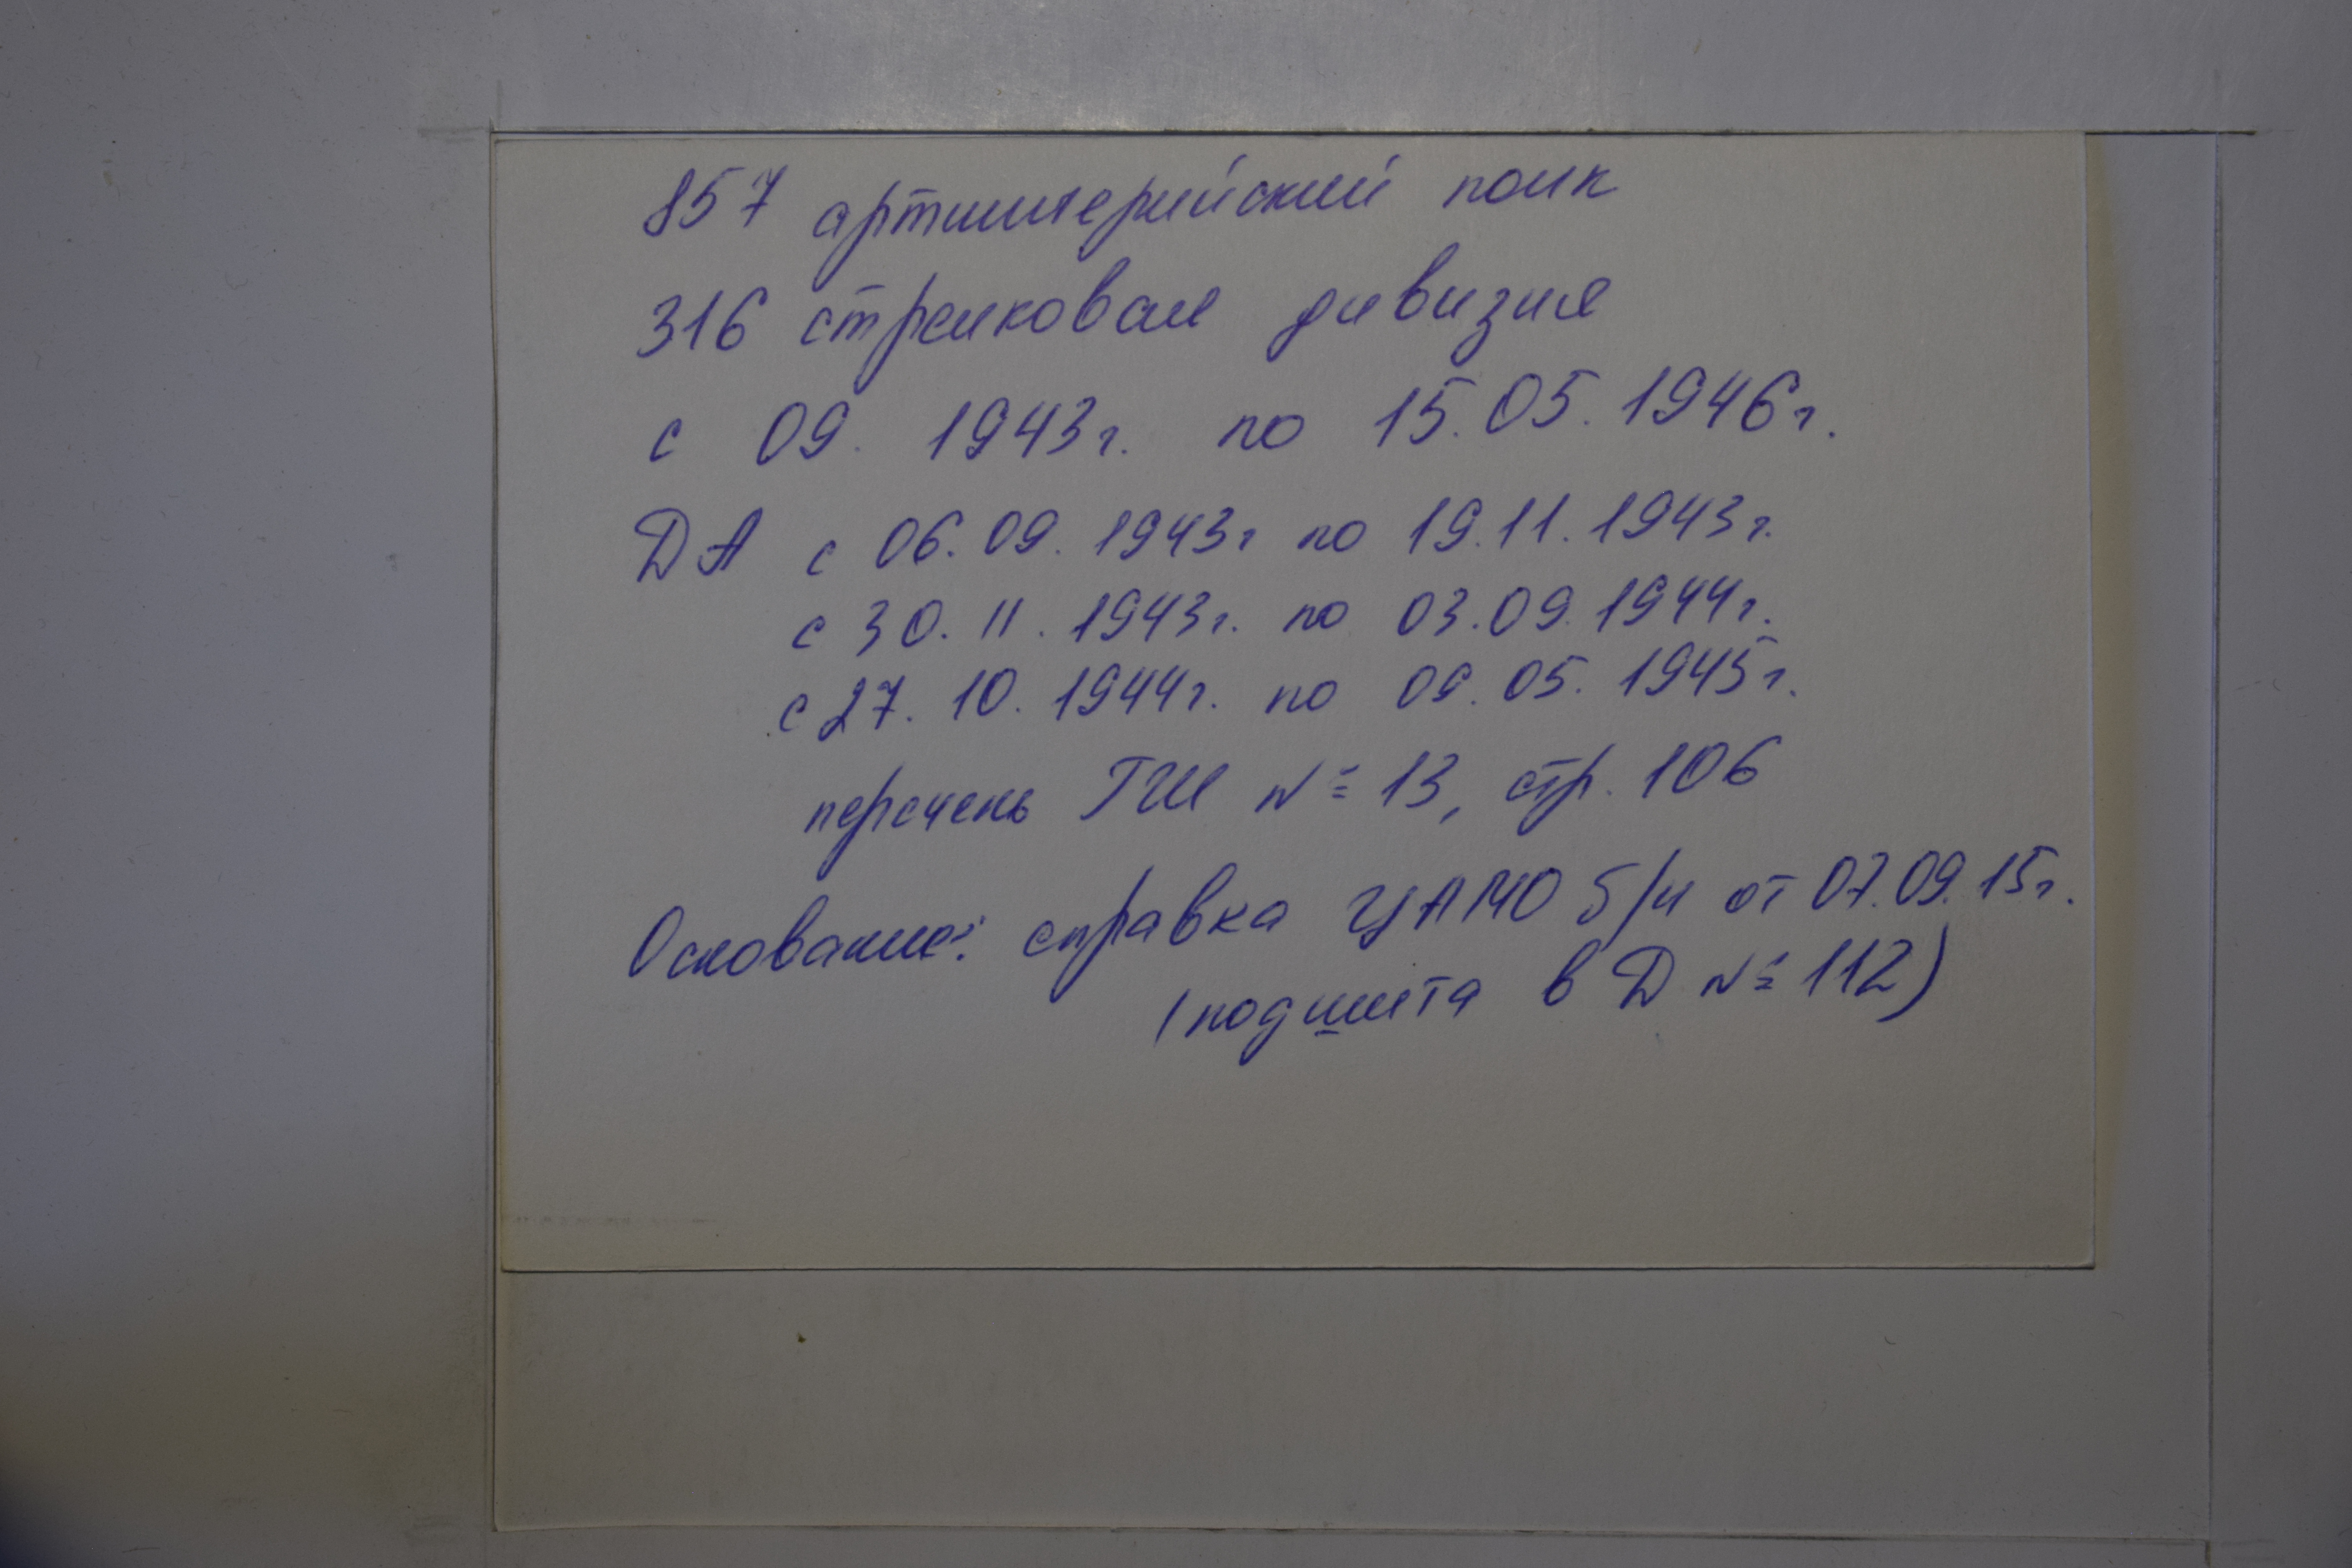 857 артиллерийский полк
316 стрелковая дивизия
с 09. 1943г. по 15.05.1946г.
ДА с 06.09.1943г по 19.11.1943г.
с 30.11.1943г. по 03.09.1944г.
с 27.10.1944г. по 09.05.1945г.
перечень ГШ № 13, стр. 106
Основание: справка ЦАМО б/н от 07.09.15г.
(подшита в Д № 112)